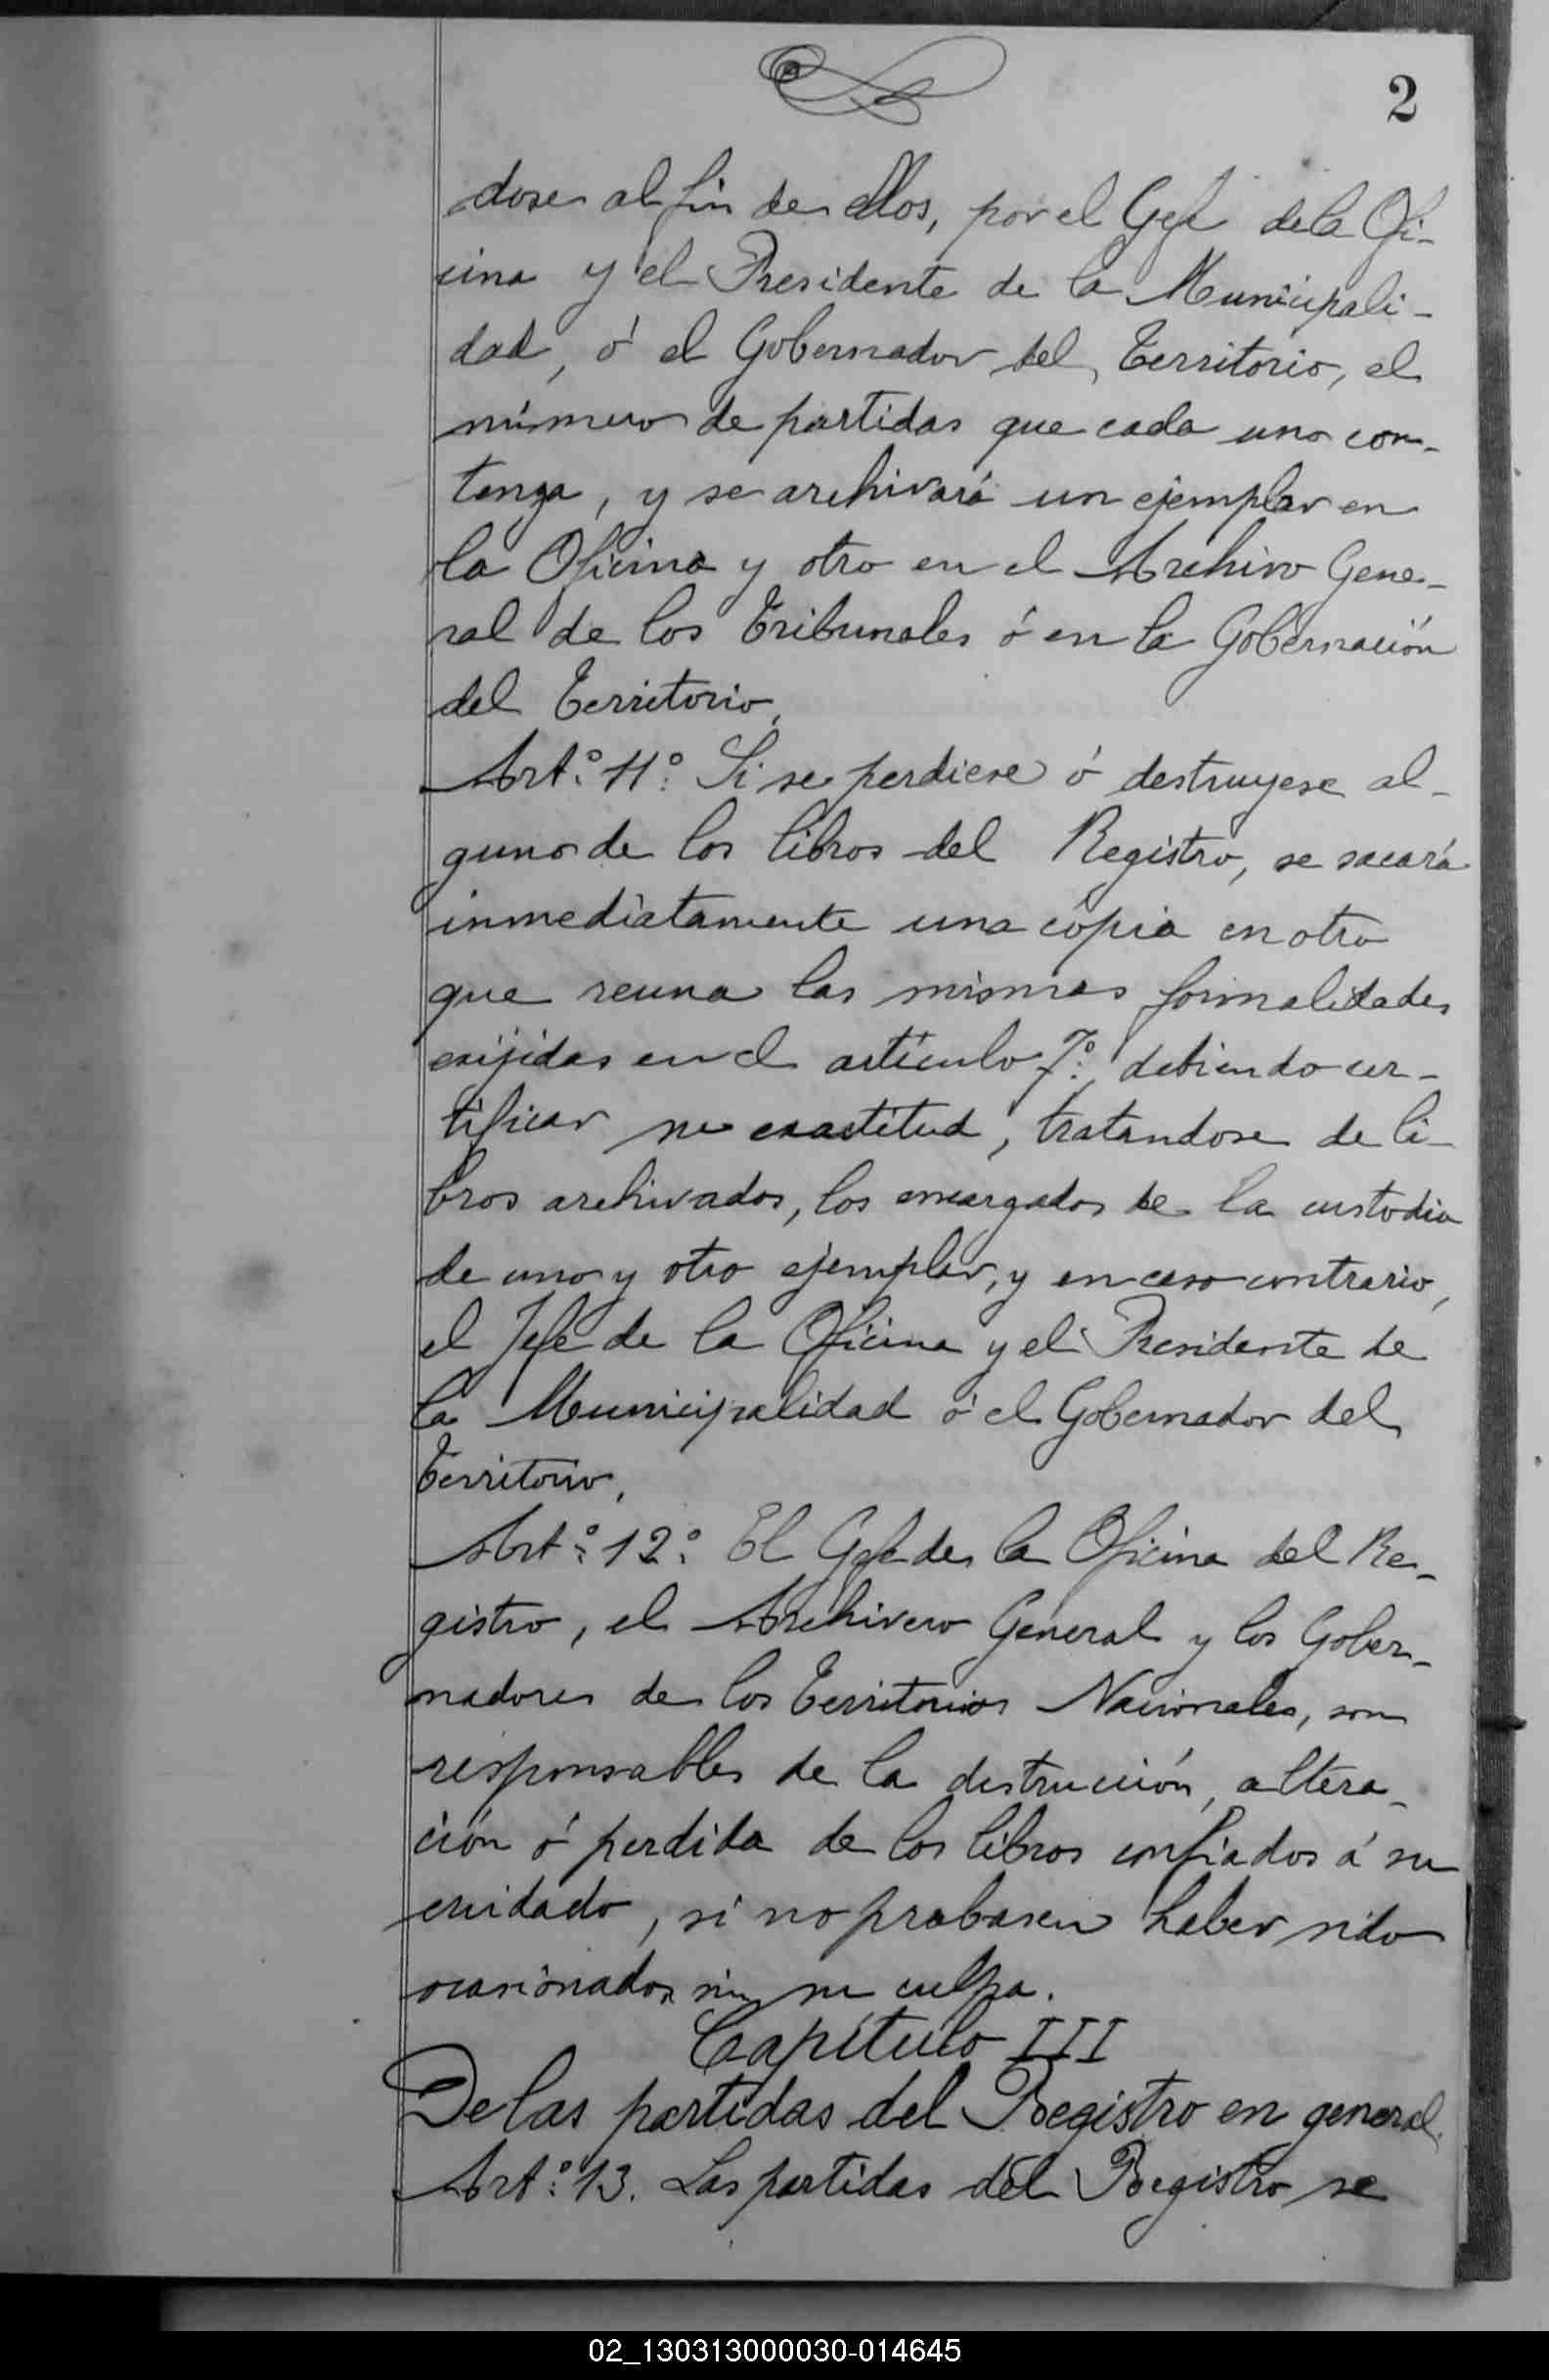 2
dose al fin de ellos, por el Gefe de la Ofi-
cina y el Presidente de la Municipali-
dad, ó el Gobernador del Territorio, el
número de partidas que cada uno con-
tenga, y se archivará un ejemplar en
la Oficina y otro en el Archivo Gene-
ral de los Tribunales ó en la Gobernación
del Territorio,
Art.º 11.º Si se perdiese ó destruyese al-
guno de los libros del Registro, se sacará
inmediatamente una copia en otro
que reuna las mismas formalidades
exijidas en el artículo 7.º, debiendo cer-
tificar su exactitud, tratandose de li-
bros archivados, los encargados de la custodia
de uno y otro ejemplar, y en caso contrario,
el Jefe de la Oficina y el Presidente de
la Municipalidad ó el Gobernador del
Territorio,
Art.º 12.º El Gefe de la Oficina del Re-
gistro, el Archivero General y los Gober-
nadores de los Territorios Nacionales, son
responsables de la destrucción, altera-
ción ó perdida de los libros confiados á su
cuidado, si no probasen haber sido
ocasionados sin su culpa.
Capítulo III
De las partidas del Registro en general.
Art.º 13. Las partidas del Registro se
02_130313000030-014645